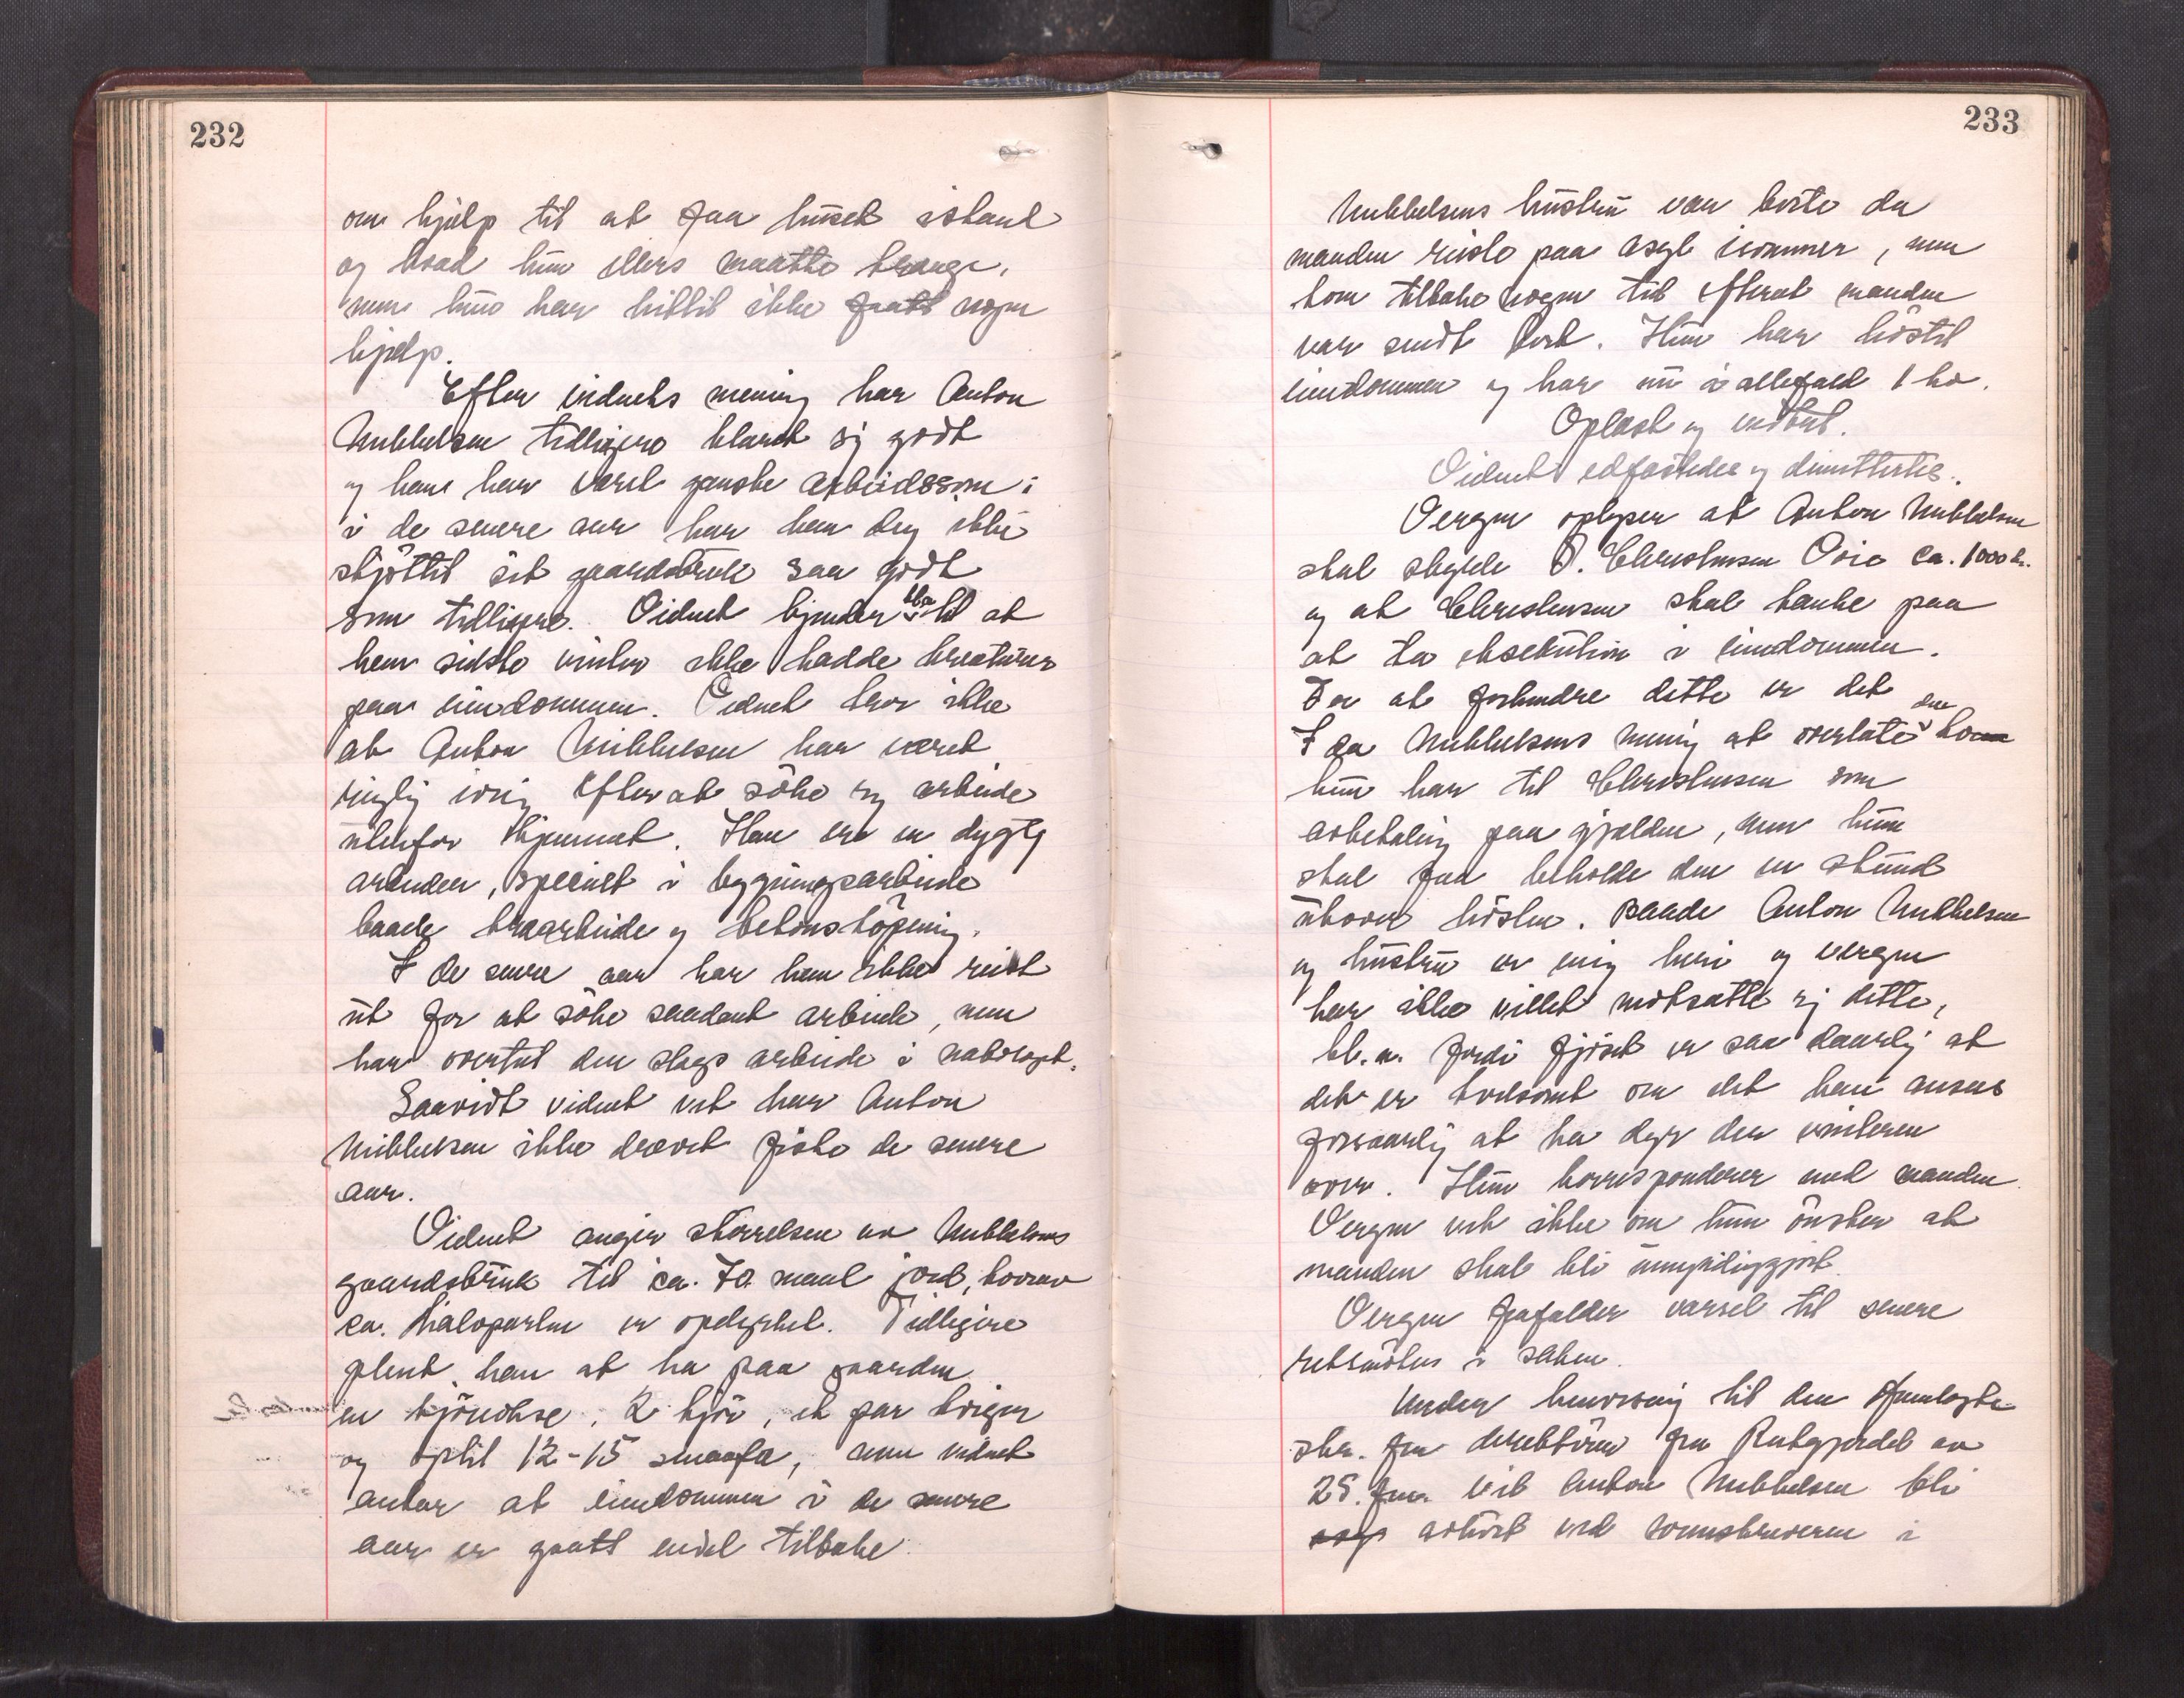 232
om hjelp til at faa huset istand
og hvad hun ellers maatte trenge,
men hun har hittil ikke faatt nogen
hjelp.
Efter vidnets mening har Anton
Mikkelsen tidligere klaret sig godt
og han har været ganske arbeidssom;
i de senere aar har han dog ikke
skjøttet sit gaardsbruk saa godt
som tidligere. Vidnet kjender bl.a. til at
han sidste vinter ikke hadde kreaturer
paa eiendommen. Vidnet tror ikke
at Anton Mikkelsen har været
rigtig ivrig efter at søke sig arbeide
utenfor hjemmet. Han er en dygtig
arbeider, specielt i bygningsarbeide
baade træarbeide og betonstøpning.
I de senere aar har han ikke reist
ut for at søke saadant arbeide, men
har overtat den slags arbeide i nabolaget.
Saavidt vidnet vet har Anton
Mikkelsen ikke drevet fiske de senere
aar.
Vidnet angir størrelsen av Mikkelsens
gaardsbruk til ca. 70 maal jord, hvorav
ca. halvparten er opdyrket. Tidligere
pleiet han at ha paa gaarden
en kjøreokse, 2 kjør, et par kviger
og optil 12-15 smaafe, men vidnet
antar at eiendommen i de senere
aar er gaatt endel tilbake
233
Mikkelsens hustru var borte da
manden reiste paa asyl isommer, men
kom tilbake nogen tid efterat manden
var sendt bort. Hun har høstet
eiendommen og har nu iallefald 1 ko.
Oplæst og vedtat.
Vidnet edfæstedes og dimitteres.
Vergen oplyser at Anton Mikkelsen
skal skylde O. Christensen Osie ca. 1000 kr.
og at Christensen skal tænke paa
at ta eksekution i eiendommen.
For at forhindre dette er det
Fru Mikkelsens mening at overlate den ko
hun har til Christensen som
avbetaling paa gjælden, men hun
skal faa beholde den en stund
utover høsten. Baade Anton Mikkelsen
og hustru er enig heri og vergen
har ikke villet motsætte sig dette,
bl.a. fordi fjøset er saa daarlig at
det er tvilsomt om det kan ansees
forsvarlig at ha dyr der vinteren
over. Hun korresponderer med manden
Vergen vet ikke om hun ønsker at
manden skal bli umyndiggjort
Vergen frafalder varsel til senere
retsmøter i saken.
Under henvisning til den fremlagte
skr. fra direktøren fra Rotvoll av
25. vil Anton Mikkelsen bli
avhørt ved sorenskriveren i